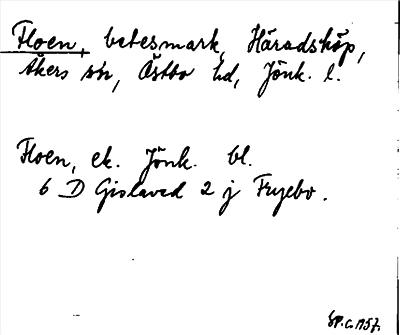 Floen, betesmark, Häradsköp,
Åkers sn, Östbo hd, Jönk. l.
Floen, ek. Jönk. bl.
6 D Gislaved 2 j Fryebo.
SP.C. 1957.